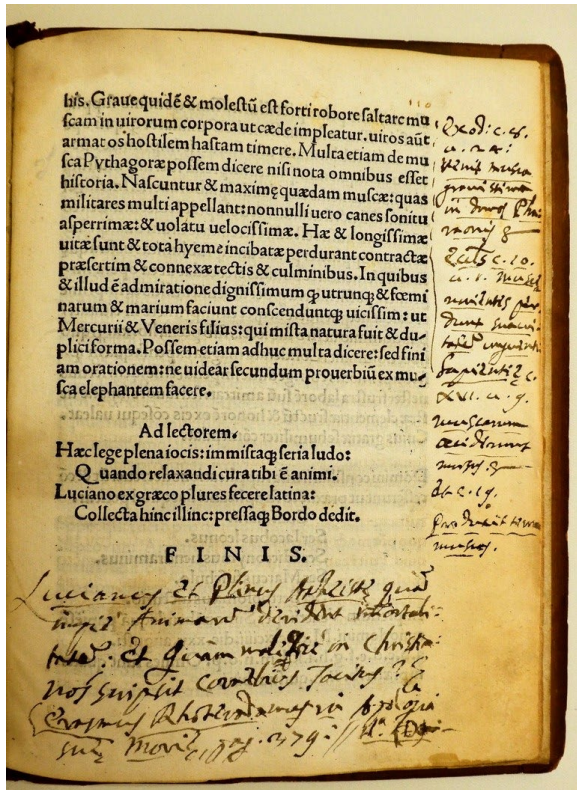 110
his. Graue quidē & molestū est forti robore saltare mu
scam in uirorum corpora ut cæde impleatur. uiros aūt
armatos hostilem hastam timere. Multa etiam de mu
sca Pythagoræ possem dicere nisi nota omnibus esset
historia. Nascuntur & maximę quædam muscæ: quas
militares multi appellant: nonnulli uero canes sonitu
asperrimæ: & uolatu uelocissimæ. Hæ & longissimæ
uitæ sunt & tota hyeme incibatæ perdurant contractæ
præsertim & connexæ tectis & culminibus. In quibus
& illud ē admiratione dignissimum ꝙ utrunq; & fœmi
narum & marium faciunt conscenduntq; uicissim: ut
Mercurii & Veneris filias: qui mista natura fuit & du-
plici forma. Possem etiam adhuc multa dicere: sed fini
am orationem: ne uidear secundum prouerbiū ex mu
sca elephantem facere.
Ad lectorem.
Hæc lege plena iocis: immistaq; seria ludo:
Quando relaxandi cura tibi ē animi.
Luciano ex græco plures fecere latina:
Collecta hinc illinc: pressaq; Bordo dedit.
FINIS.
Exod: c.
uenit musca
grauissima
in domos Pha
raonis
musce
morientes per
dunt suaui
tatem unguenti
Sapientię c.
XVI. u. 9.
muscarum
occiderunt
morsus
Lucianus et Plinius Atheistę quam
impie Animarum derident immortali-
tatem: Et quam in Christia
nos scripsit Cornelius Tacitus?
Erasmus in
suę Morię, pag. 279: